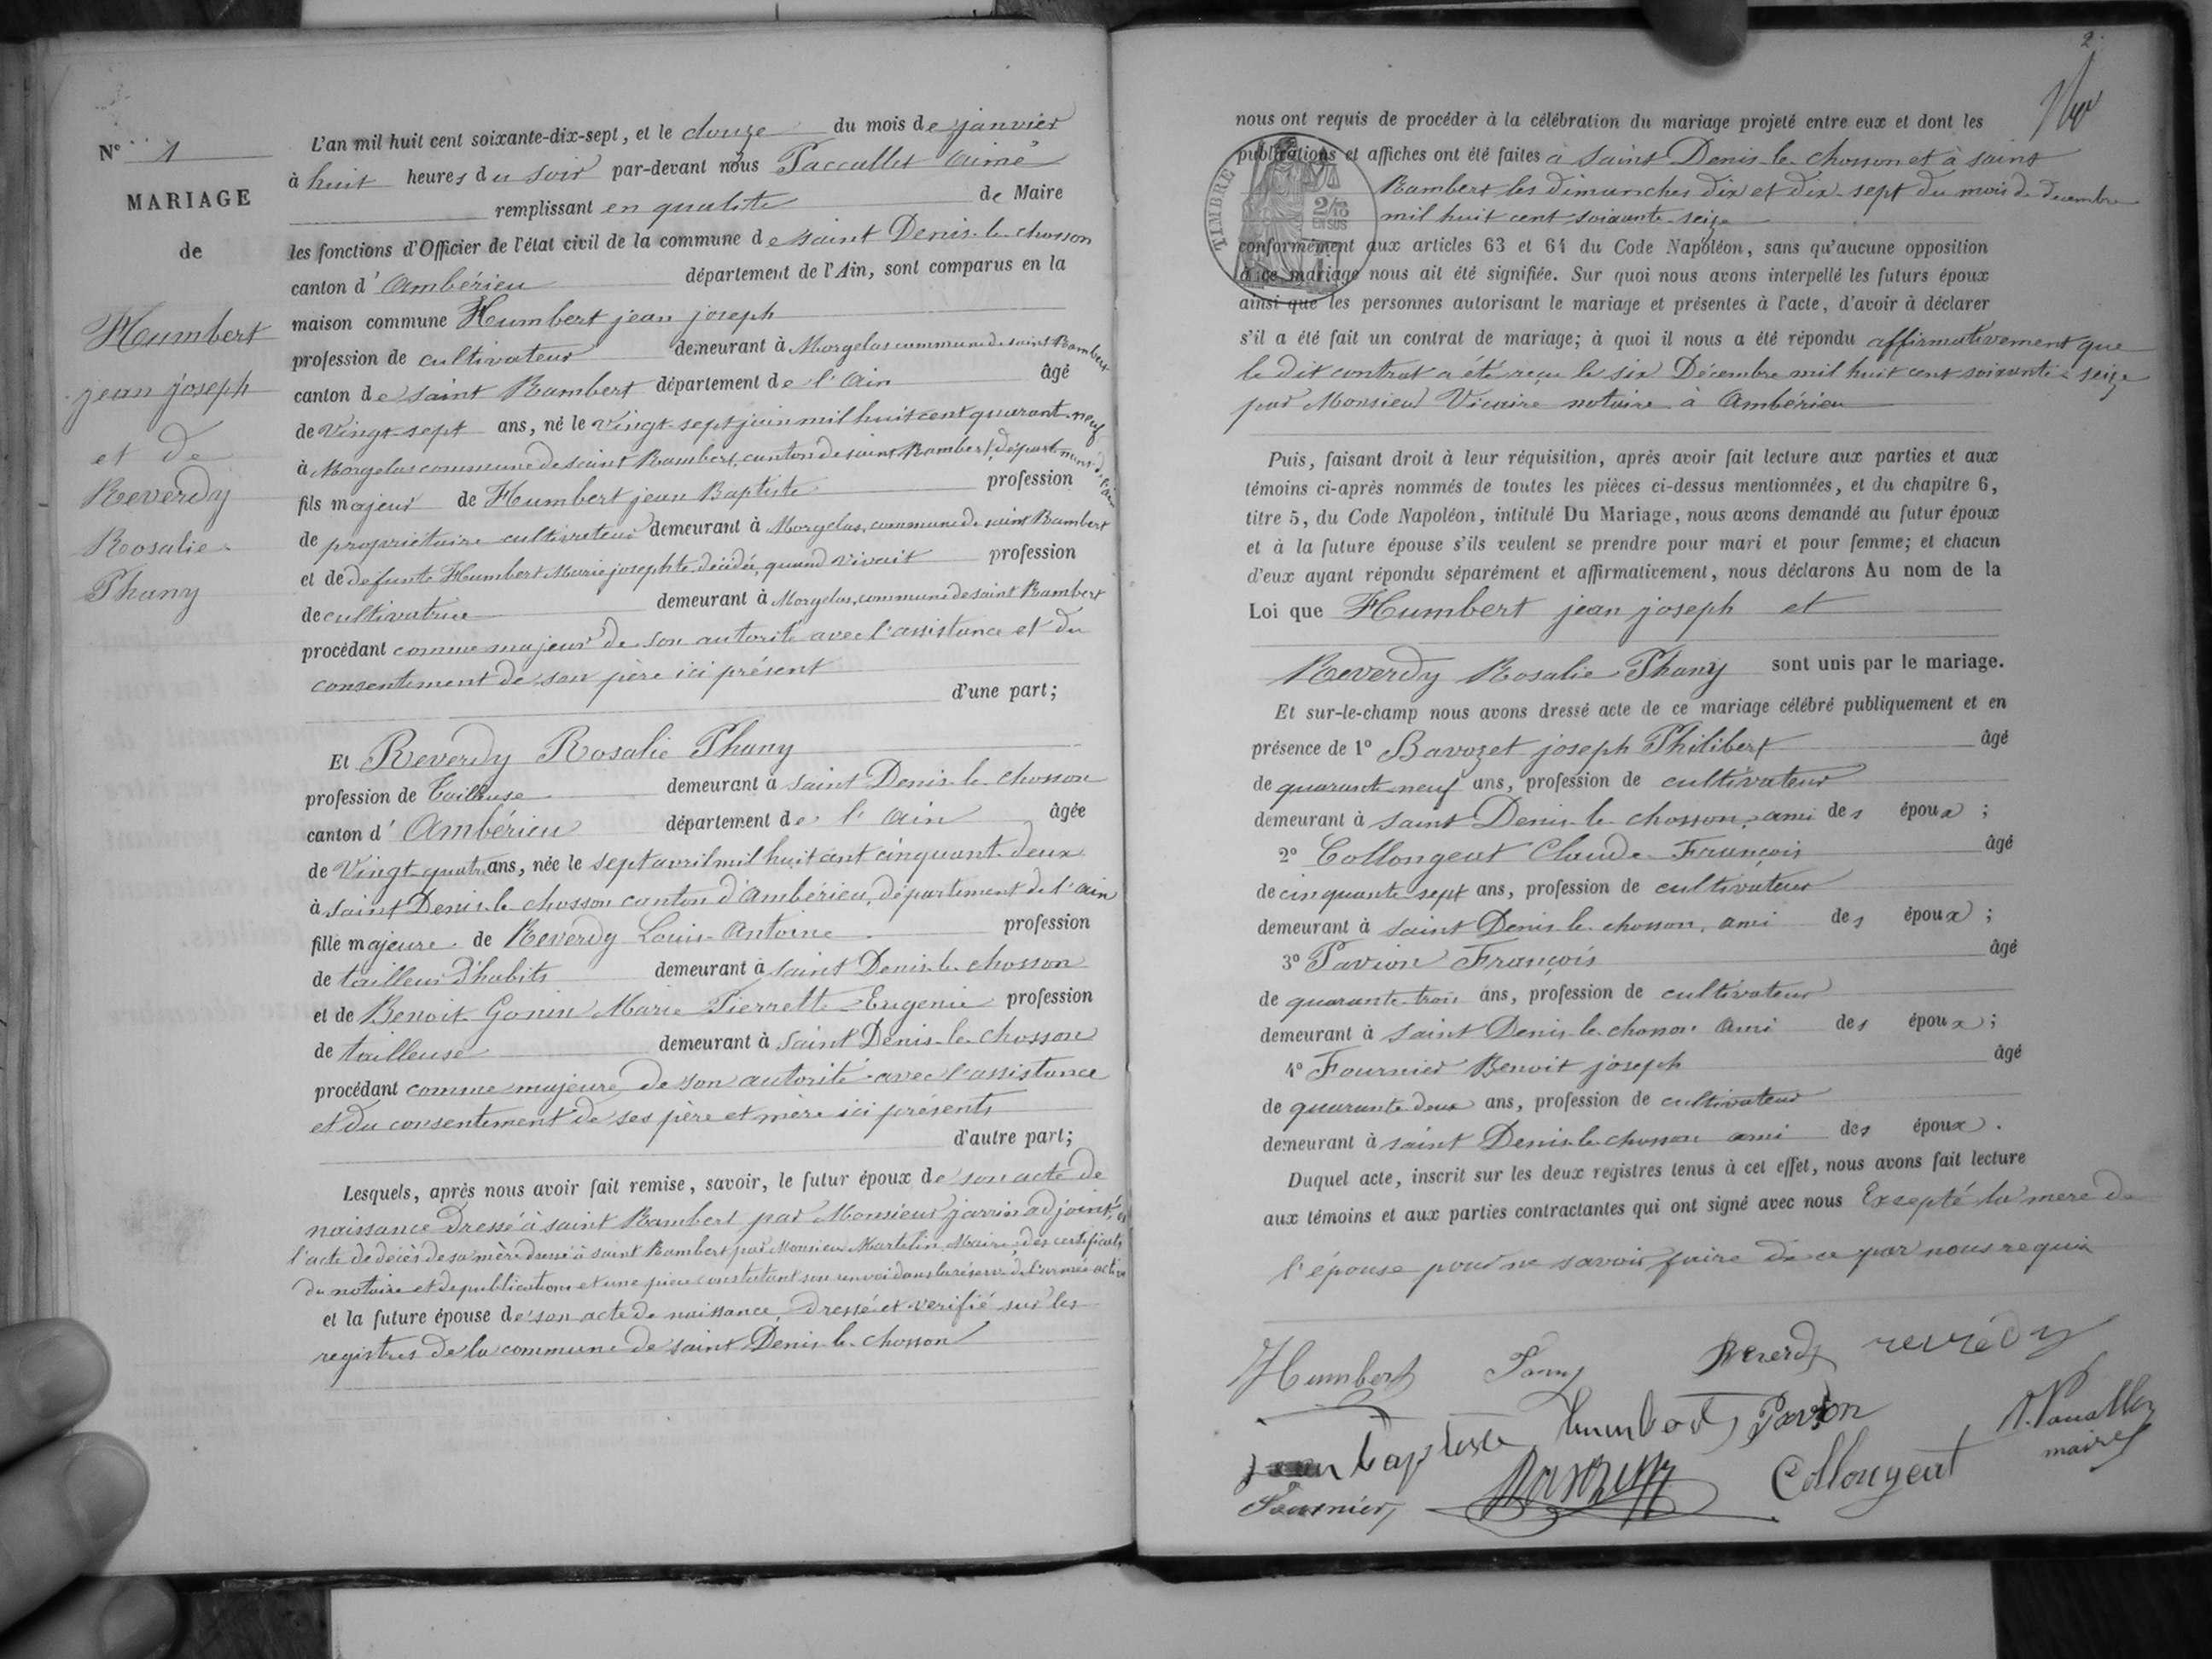 N° 1
MARIAGE
de
Humbert
jean joseph
et de
Reverdy
Rosalie
Phany
L'an mil huit cent soixante-dix-sept, et le douze du mois de janvier
à huit heures du soir par-devant nous Paccallet Aimé
remplissant en qualité de Maire
les fonctions d'Officier de l'état civil de la commune de saint Denis-le-chosson
canton d'Ambérieu département de l'Ain, sont comparus en la
maison commune Humbert jean joseph
profession de cultivateur demeurant à Morgelas commune de saint Rambert
canton de saint Rambert département de l'Ain âgé
de Vingt-sept ans, né le vingt-sept juin mil huit cent quarant-neuf
à Morgelas commune de saint Rambert, canton de saint Rambert, département de l'ain
fils majeur de Humbert jean Baptiste profession
de propriétaire cultivateur demeurant à Morgelas, commune de saint Rambert
et de defunte Humbert Marie josephte décédée, quand vivait profession
de cultivatrice demeurant à Morgelas, commune de saint Rambert
procédant comme majeur de son autorité avec l'assistance et du
consentement de son père ici présent
d'une part;
Et Reverdy Rosalie Phany
profession de Tailleuse demeurant à saint Denis-le-chosson
canton d'Ambérieu département de l'Ain âgée
de Vingt-quatre ans, née le sept avril mil huit cent cinquant-deux
à saint Denis-le-chosson canton d'Ambérieu, département de l'ain
fille majeure de Reverdy Louis-Antoine profession
de tailleur d'habits demeurant à saint Denis-le-chosson
et de Benoit-Gonin Marie Pierrette-Eugenie profession
de tailleuse demeurant à saint Denis-le-chosson
procédant comme majeure de son autorité avec l'assistance
et du consentement de ses père et mère ici présents
d'autre part;
Lesquels, après nous avoir fait remise, savoir, le futur époux de son acte de
naissance dressé à saint Rambert par Monsieur jarrin adjoint, de
l'acte de décès de sa mère dressé à saint Rambert par Monsieur Martelin Maire, des certificats
du notaire et de publications et une pièce constatant son renvoi dans la réserve de l'armée active
et la future épouse de son acte de naissance, dressé et verifié sur les
registres de la commune de saint Denis-le-chosson
2
nous ont requis de procéder à la célébration du mariage projeté entre eux et dont les
publications et affiches ont été faites à saint Denis-le-chosson et à saint
Rambert les dimanches dix et dix-sept du mois de decembre
mil huit cent soixante-seize
TIMBRE
2/10
EN SUS
conformément aux articles 63 et 64 du Code Napoléon, sans qu'aucune opposition
à ce mariage nous ait été signifiée. Sur quoi nous avons interpellé les futurs époux
ainsi que les personnes autorisant le mariage et présentes à l'acte, d'avoir à déclarer
s'il a été fait un contrat de mariage; à quoi il nous a été répondu affirmativement que
le dit contrat a été reçu le six Décembre mil huit cent soixante-seize
par Monsieur Vicaire notaire à Ambérieu
Puis, faisant droit à leur réquisition, après avoir fait lecture aux parties et aux
témoins ci-après nommés de toutes les pièces ci-dessus mentionnées, et du chapitre 6,
titre 5, du Code Napoléon, intitulé Du Mariage, nous avons demandé au futur époux
et à la future épouse s'ils veulent se prendre pour mari et pour femme; et chacun
d'eux ayant répondu séparément et affirmativement, nous déclarons Au nom de la
Loi que Humbert jean joseph et
Reverdy Rosalie Phany sont unis par le mariage.
Et sur-le-champ nous avons dressé acte de ce mariage célébré publiquement et en
présence de 1° Bavozet joseph Philibert âgé
de quarant-neuf ans, profession de cultivateur
demeurant à saint Denis-le-chosson, ami des époux;
2° Collongeat Claude-François âgé
de cinquante-sept ans, profession de cultivateur
demeurant à saint Denis-le-chosson, ami des époux;
3° Pavion François âgé
de quarante-trois ans, profession de cultivateur
demeurant à saint Denis-le-chosson Ami des époux;
4° Fournier Benoit joseph âgé
de quarante-deux ans, profession de cultivateur
demeurant à saint Denis-le-chosson ami des époux.
Duquel acte, inscrit sur les deux registres tenus à cet effet, nous avons fait lecture
aux témoins et aux parties contractantes qui ont signé avec nous Excepté la mere de
l'épouse pour ne savoir faire de ce par nous requis
Humbert Fany Reverdy revredy
jean baptiste humbert Pavion
maire
Fournier Bavozet Collongeat